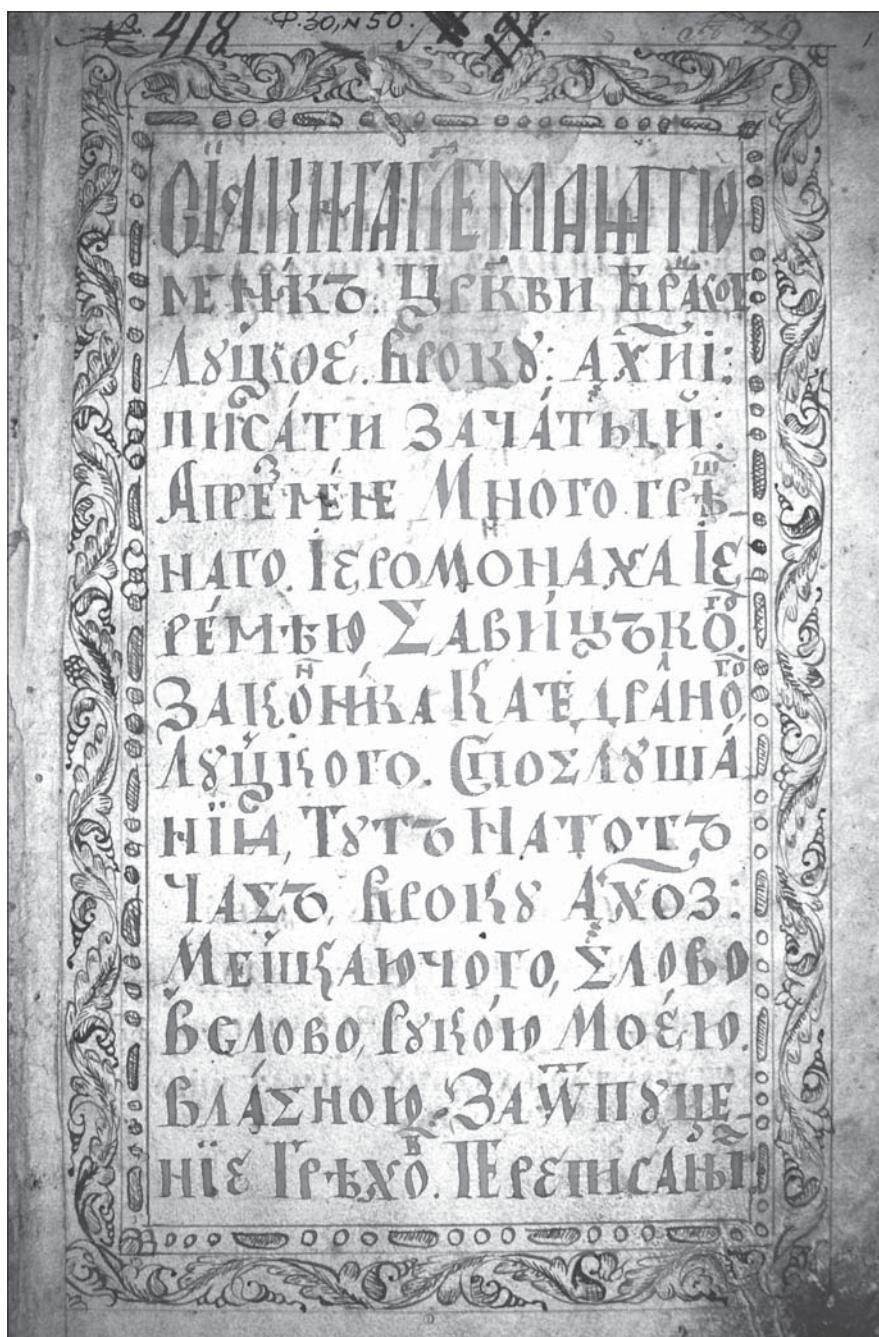 418 Ф. 30, N 50.
СїѦ КНИГА ПЕМАННЫЮ
МЕНИКЪ. ЦРКВИ БРАЦКОЕ
ЛꙋЦКОЕ. ВРОКꙋ: АХИІ:
ПИСА́ТИ ЗАЧА́ТЫЙ:
АПРЕЗМЕ́НЕ МНОГОГРѢШ-
НАГО. ІЕРОМОНАХА ІЕ
РЕ́МѢЮ САВИ́ЦЪКОГО.
ЗАКО́ННИКА КАТЕДРА́ЛНОГО
ЛꙋЦКОГО. СПОСЛꙋША́
НЇѦ, ТꙋТЪ НАТОТЪ
ЧАСЪ, ВРОКꙋ АХОЗ:
МЕШКАЮЧОГО, СЛОВО
ВСЛОВО, РУКО́Ю МОЕ́Ю
ВЛА́СНОЮ. ЗА ѾПꙋЩЕ-
НЇЕ ГРѢХО́В. ПЕРЕПИСА́НЫЙ